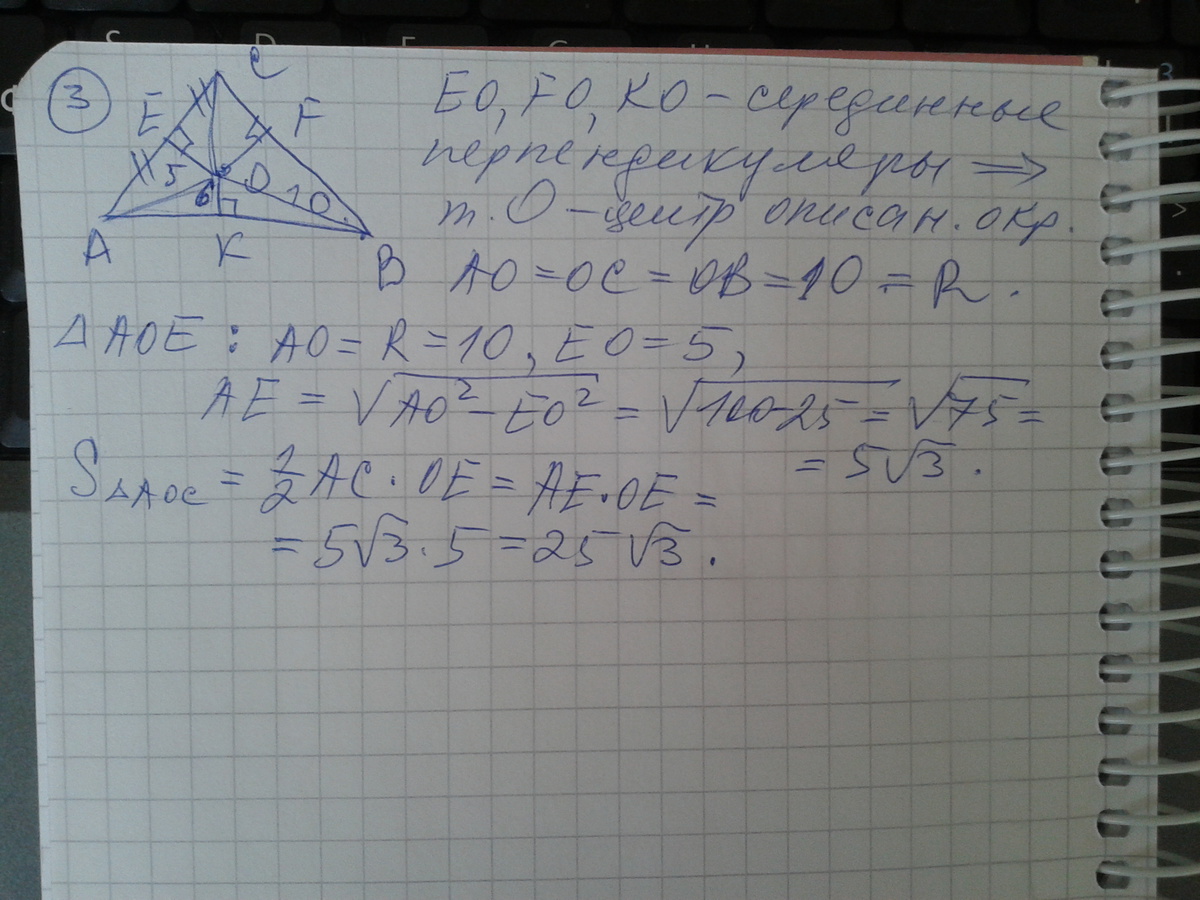 ③
C
E F
5 O 10
6
A K B
EO, FO, KO – серединные
перпендикуляры ⟹
т. O – центр описан. окр.
AO = OC = OB = 10 = R.
△AOE : AO = R = 10, EO = 5,
AE = √(AO² – EO²) = √(100-25) = √75 =
= 5√3.
S△AOC = 1/2 AC · OE = AE · OE =
= 5√3 · 5 = 25√3.